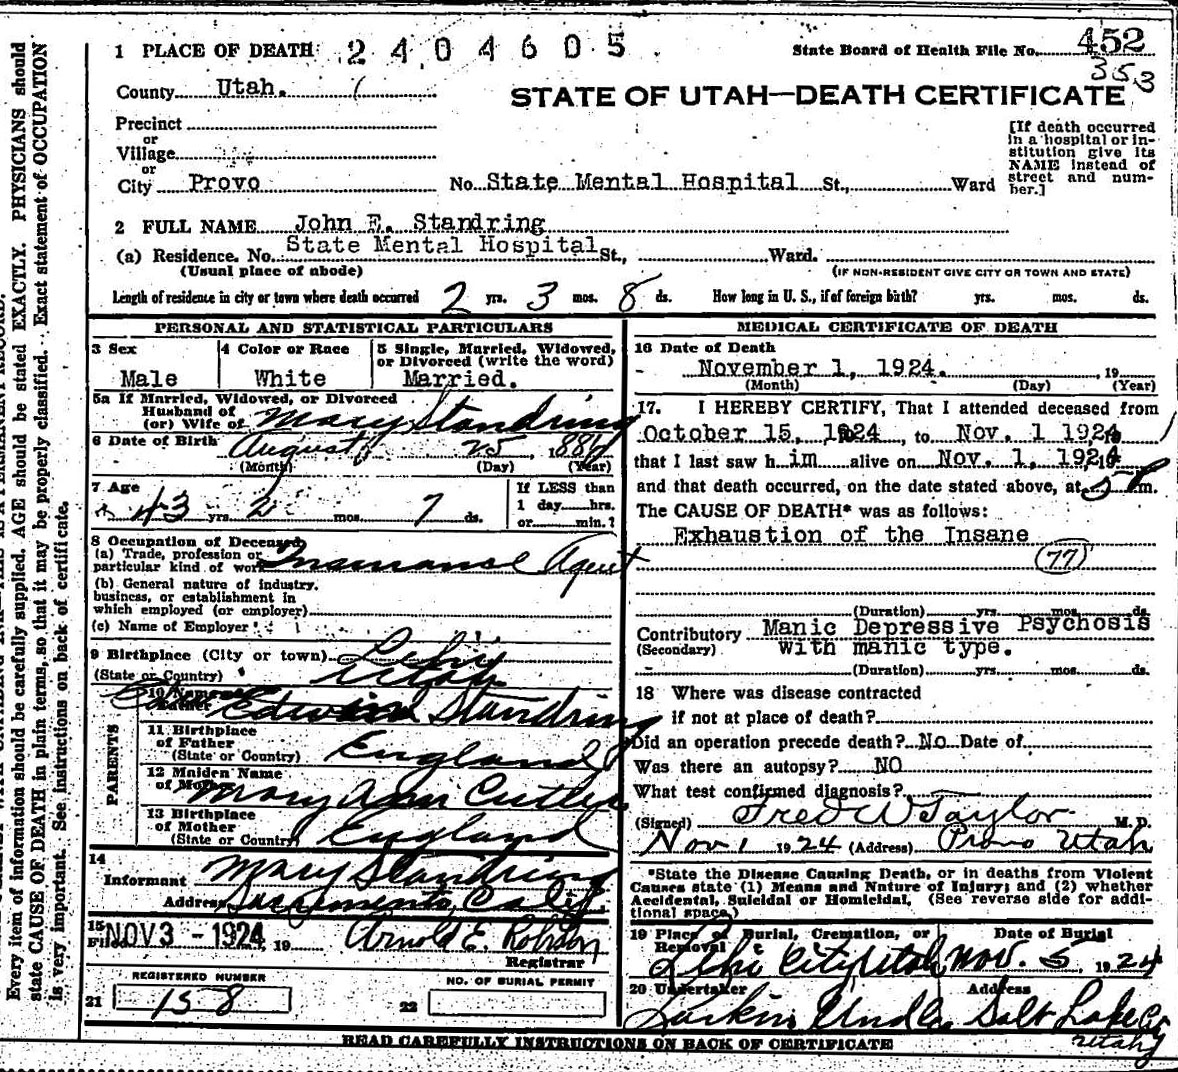 1 PLACE OF DEATH 2404605
State Board of Health File No. 452
353
County Utah.
STATE OF UTAH—DEATH CERTIFICATE
Precinct
or
Village
or
City Provo No. State Mental Hospital St., Ward
[If death occurred in a hospital or institution give its NAME instead of street and number.]
2 FULL NAME John E. Standring
(a) Residence. No. State Mental Hospital St., Ward.
(Usual place of abode) (IF NON-RESIDENT GIVE CITY OR TOWN AND STATE)
Length of residence in city or town where death occurred 2 yrs. 3 mos. 8 ds. How long in U. S., if of foreign birth? yrs. mos. ds.
PERSONAL AND STATISTICAL PARTICULARS
3 Sex 4 Color or Race 5 Single, Married, Widowed, or Divorced (write the word)
Male White Married.
5a If Married, Widowed, or Divorced
Husband of
(or) Wife of Mary Standring
6 Date of Birth August 25, 1881
(Month) (Day) (Year)
7 Age 43 yrs. 2 mos. 7 ds.
If LESS than
1 day hrs.
or min.?
8 Occupation of Deceased
(a) Trade, profession or
particular kind of work Insurance Agent
(b) General nature of industry,
business, or establishment in
which employed (or employer)
(c) Name of Employer
9 Birthplace (City or town) Lehi
(State or Country) Utah
PARENTS
10 Name of
Father Edwin Standring
11 Birthplace
of Father
(State or Country) England
12 Maiden Name
of Mother Mary Ann Cutler
13 Birthplace
of Mother
(State or Country) England
14
Informant Mary Standring
Address Sacramento, Calif.
15
Filed NOV 3 - 1924, 19
Arnold E. Robison
Registrar
REGISTERED NUMBER NO. OF BURIAL PERMIT
21 158 22
MEDICAL CERTIFICATE OF DEATH
16 Date of Death
November 1, 1924. 19
(Month) (Day) (Year)
17. I HEREBY CERTIFY, That I attended deceased from
October 15, 1924, to Nov. 1 1924
that I last saw him alive on Nov. 1, 1924
and that death occurred, on the date stated above, at 5 P m.
The CAUSE OF DEATH* was as follows:
Exhaustion of the Insane
(77)
(Duration) yrs. mos. ds.
Contributory Manic Depressive Psychosis
(Secondary) with manic type.
(Duration) yrs. mos. ds.
18 Where was disease contracted
if not at place of death?
Did an operation precede death? No Date of
Was there an autopsy? NO
What test confirmed diagnosis?
(Signed) Fred W Taylor M. D.
Nov 1 1924 (Address) Provo Utah
*State the Disease Causing Death, or in deaths from Violent
Causes state (1) Means and Nature of Injury; and (2) whether
Accidental, Suicidal or Homicidal. (See reverse side for additional space.)
19 Place of Burial, Cremation, or Removal Date of Burial
Lehi City Utah Nov. 5, 1924
20 Undertaker Address
Larkin Salt Lake Cy
Utah
READ CAREFULLY INSTRUCTIONS ON BACK OF CERTIFICATE
Every item of information should be carefully supplied. AGE should be stated EXACTLY. PHYSICIANS should
state CAUSE OF DEATH in plain terms, so that it may be properly classified. Exact statement of OCCUPATION
is very important. See instructions on back of certificate.